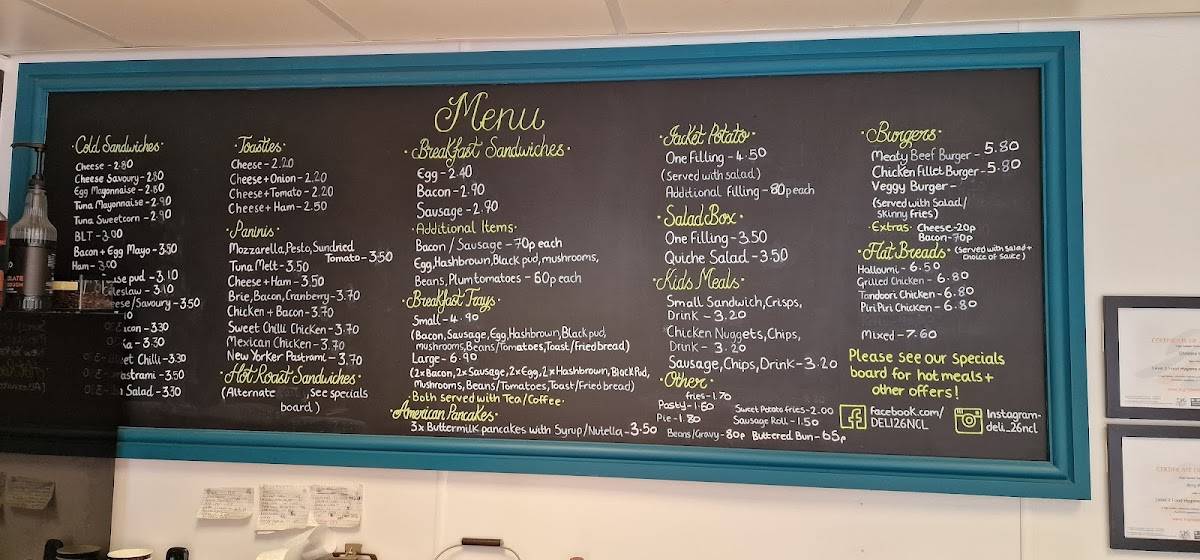 Menu
·Cold Sandwiches·
Cheese - 2.80
Cheese Savoury - 2.80
Egg Mayonnaise - 2.80
Tuna Mayonnaise - 2.90
Tuna Sweetcorn - 2.90
BLT - 3.00
Bacon + Egg Mayo - 3.50
Ham - 3.00
pud - 3.10
Coleslaw - 3.10
/Savoury - 3.50
- 3.30
- 3.30
Chilli - 3.30
Pastrami - 3.50
Salad - 3.30
·Toasties·
Cheese - 2.20
Cheese + Onion - 2.20
Cheese + Tomato - 2.20
Cheese + Ham - 2.50
·Paninis·
Mozzarella, Pesto, Sundried
Tomato - 3.50
Tuna Melt - 3.50
Cheese + Ham - 3.50
Brie, Bacon, Cranberry - 3.70
Chicken + Bacon - 3.70
Sweet Chilli Chicken - 3.70
Mexican Chicken - 3.70
New Yorker Pastrami - 3.70
·Hot Roast Sandwiches·
(Alternate , see specials
board.)
·Breakfast Sandwiches·
Egg - 2.40
Bacon - 2.90
Sausage - 2.90
·Additional Items·
Bacon / Sausage - 70p each
Egg, Hashbrown, Black pud, mushrooms,
Beans, Plum tomatoes - 60p each
·Breakfast Trays·
Small - 4.90
(Bacon, Sausage, Egg, Hashbrown, Black pud,
mushrooms, Beans/Tomatoes, Toast/fried bread)
Large - 6.90
(2x Bacon, 2x Sausage, 2x Egg, 2x Hashbrown, Black Pud,
Mushrooms, Beans/Tomatoes, Toast/Fried bread)
·Both served with Tea/Coffee·
·American Pancakes·
3x Buttermilk pancakes with Syrup/Nutella - 3.50
·Jacket Potato·
One Filling - 4.50
(Served with salad)
Additional filling - 80p each
·Salad Box·
One Filling - 3.50
Quiche Salad - 3.50
·Kids Meals·
Small Sandwich, Crisps,
Drink - 3.20
Chicken Nuggets, Chips,
Drink - 3.20
Sausage, Chips, Drink - 3.20
·Other·
fries - 1.70
Pasty - 1.60
Sweet Potato fries - 2.00
Pie - 1.80
Sausage Roll - 1.50
Beans/Gravy - 80p
Buttered Bun - 65p
·Burgers·
Meaty Beef Burger - 5.80
Chicken Fillet Burger - 5.80
Veggy Burger -
(Served with Salad/
Skinny fries)
·Extras· Cheese - 20p
Bacon - 70p
·Flat Breads· (Served with salad +
choice of sauce)
Halloumi - 6.50
Grilled Chicken - 6.80
Tandoori Chicken - 6.80
Piri Piri Chicken - 6.80
Mixed - 7.60
Please see our specials
board for hot meals +
other offers!
facebook.com/
DELI26NCL
Instagram-
deli_26ncl